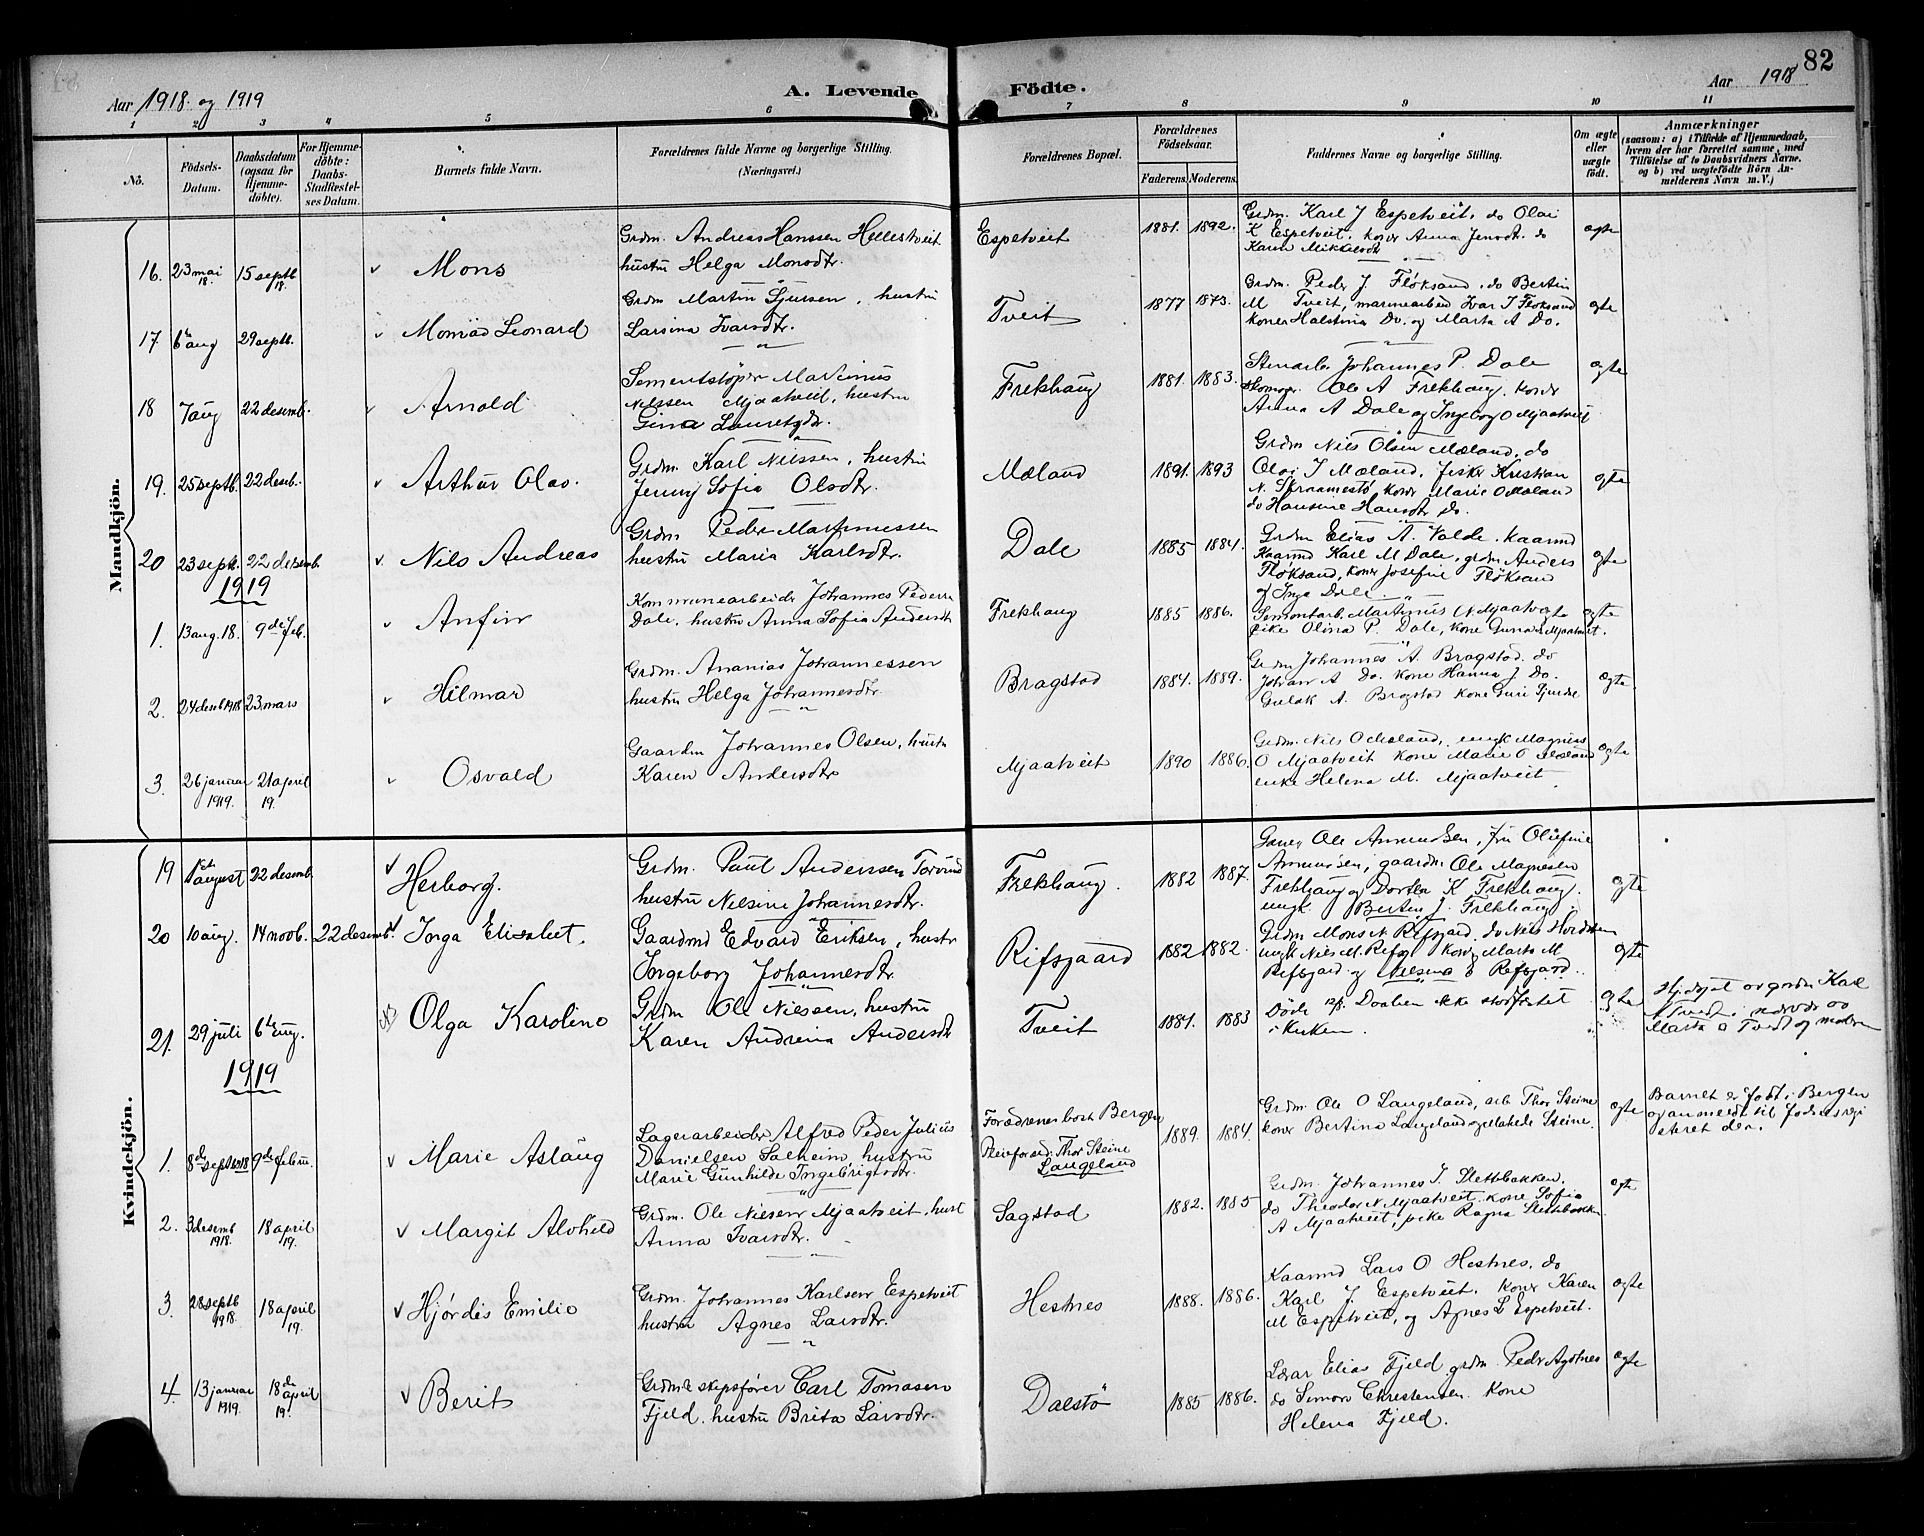 82
Aar 1918 og 1919
A. Levende Födte.
Aar 1918
1 2 3 4 5 6 7 8 9 10 11
No.
Födsels-Datum.
Daabsdatum (ogsaa for Hjemme-döbte).
For Hjemme-döbte: Daabs-Stadfæstel-ses Datum.
Barnets fulde Navn.
Forældrenes fulde Navne og borgerlige Stilling.
(Næringsvei.)
Forældrenes Bopæl.
Forældrenes Födselsaar.
Faderens. Moderens.
Faddernes Navne og borgerlige Stilling.
Om ægte eller uægte födt.
Anmærkninger
(saasom: a) i Tilfælde af Hjemmedaab,
hvem der har forrettet samme, med
Tilföielse af to Daabsvidners Navne,
og b) ved uægtefödte Börn An-
melderens Navn m. V.)
Mandkjön.
16. 23 mai 18. 15 septb 18. Mons
Grdm. Andreas Hanssen Hellestveit
hustru Helga Monsdtr.
Espetveit 1881. 1892.
Grdm. Karl J Espetveit, do Olai
K Espetveit, koner Anna Jensdt. do
Karen Mikkelsdtr
ægte
17 6te aug 29 septb. Monrad Leonard
Grdm Martin Sjursen, hustru
Larsina Ivarsdtr.
Tveit 1877 1873.
Grdm. Peder J. Fløksand, do Bertin
M Tveit, Ivar J Fløksand
koner Halstina Do. og Marta A Do.
ægte
18 7 aug 22 desemb. Arnold
Sementstöper Martinus
Nilssen Mjaatveit, hustru
Gina Lauretzdtr.
Frekhaug 1881. 1883.
Stenarb. Johannes P. Dale
Skomager Ole A Frekhaug, koner
Anna A Dale og Ingeborg O Mjaatveit
ægte
19. 25 septb. 22 desb. Arthur Olav.
Grdm. Karl Nilssen, hustru
Jenny Sofia Olsdtr.
Mæland 1891. 1893
Grdm Nils Olsen Mæland, do
Olai J Mæland, fisker Kristian
N. Skraamestö, koner Marie O Mæland
do Hansine Hansdtr Do.
ægte
20 23 septb. 22 desemb. Nils Andreas
Grdm Peder Martinussen
hustru Maria Karlsdtr.
Dale 1885 1884.
Grdm Elias A. Valde, kaarmd
Kaarmd Karl M Dale, grdm Anders
Fløksand, koner Josefine Fløksand
og Inga Dale
ægte
1919
1. 13 aug. 18. 9de feb. Anfin
Kommunearbeider Johannes Pedersen
Dale, hustru Anna Sofia Andersdt
Frekhaug 1885 1886.
Sementarb. Martinus N. Mjaatveit
pike Olina P. Dale, kone Mjaatveit.
ægte
2. 24 desb 1918 23 mars Hilmar
Grdm. Ananias Johannessen
hustru Helga Johannesdtr.
Bragstad 1884. 1889.
Grdm Johannes A. Bragstad. do
Johan A Do. kone Hanna J Do.
Gulak A. Bragstad kone Guri
ægte
3. 26 januar 1919. 21 april 19. Osvald
Gaardm Johannes Olsen, hustr
Karen Andersdtr
Mjaatveit 1890 1886.
Grdm. Nils O Mæland, ungk Magnus
O Mjaatveit kone Marie O Mæland
enke Helena M. Mjaatveit
ægte
Kvindekjön.
19 1st august 22 desemb. Herborg.
Grdm. Paul Anderssen
hustru Nilsine Johannesdtr.
Frekhaug. 1882 1887.
Ole Amundsen, fru Olufine
Amundsen, gaardm. Ole Magnesen
Frekhaug og Dortea K Frekhaug.
ungk. Bertin J. Frekhaug.
ægte
20 10 aug. 14 novb. 22 desemb. Inga Elisabet.
Gaardmd Edvard Eriksen, hustr
Ingeborg Johannesdtr.
Rifsgaard 1882 1882.
Grdm Mons N Rifsgard. do Nils
ungk Niels M. Refsg koner Marta M
Refsgard og Nilsina E Refsgard.
ægte
21. 29 juli 6te aug. Olga Karoline
Grdm Ole Nielsen, hustru
Karen Andrina Andersdtr
Tveit 1881. 1883
Döde. Daaben ikke stadfæstet
i kirken.
ægte
Hj.döpt av grdm Karl
A Tveit, nærvær av
Marta O Tveit og moderen
1919
1. 8de septb 1918 9de febru. Marie Aslaug
Lagerarbeider Alfred Peder Julius
Danielsen Salheim, hustru
Marie Gunhilde Ingebrigtsdtr.
Forældrenes bost Bergen
Pleieforæld. Thor Steine
Langeland
1889. 1884.
Grdm. Ole O Langeland, arb Thor Steine
koner Bertina Langeland og Steine.
ægte
Barnet er födt i Bergen
og anmeldt til födselsregi
steret der.
2. 3 desemb 1918. 18 april 19. Margit Alvhild
Grdm. Ole Nielsen Mjaatveit, hust
Anna Ivarsdtr.
Sagstad 1882. 1885
Grdm. Johannes J. Slettebakken.
do Theodor N Mjaatveit. kone Sofia
A Mjaatveit, pike Ragna Slettebakken
ægte
3. 28 septb 1918. 18 april 19. Hjørdis Emilie
Grdm. Johannes Karlsen Espetveit
hustru Agnes Larsdtr.
Hestnes 1888. 1886.
Kaarmd Lars O Hestnes, do
Karl J. Espetveit. koner Karen
M Espetveit, og Agnes L Espetveit.
ægte
4. 13 januar 1919. 18de april 19. Berit
Grdm & skipsfører Carl Tomasen
Fjeld, hustru Brita Larsdtr.
Dalstö 1885 1886.
Lærer Elias Fjeld, grdm. Peder Agotnes
do Simon Christensen. kone
Helena Fjeld.
ægte